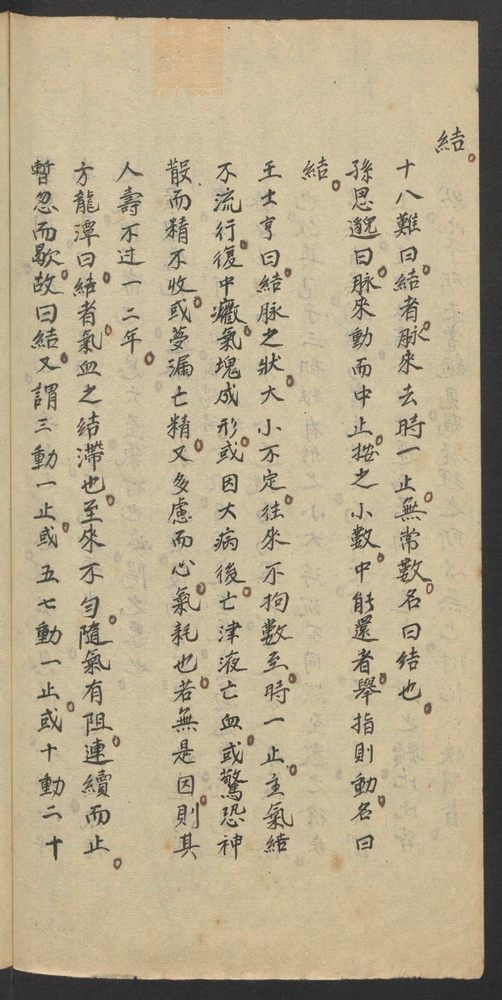 結
十八難曰結者脉來去時一止無常數名曰結也
孫思邈曰脉來動而中止按之小數中能還者舉指則動名曰
結
王士亨曰結脉之狀大小不定往來不拘數至時一止主氣結
不流行復中癥氣塊成形或因大病後亡津液亡血或驚恐神
散而精不收或夢漏亡精又多慮而心氣耗也若無是因則其
人壽不过一二年
方龍潭曰結者氣血之結滯也至來不匀隨氣有阻連續而止
暫忽而歇故曰結又謂三動一止或五七動一止或十動二十